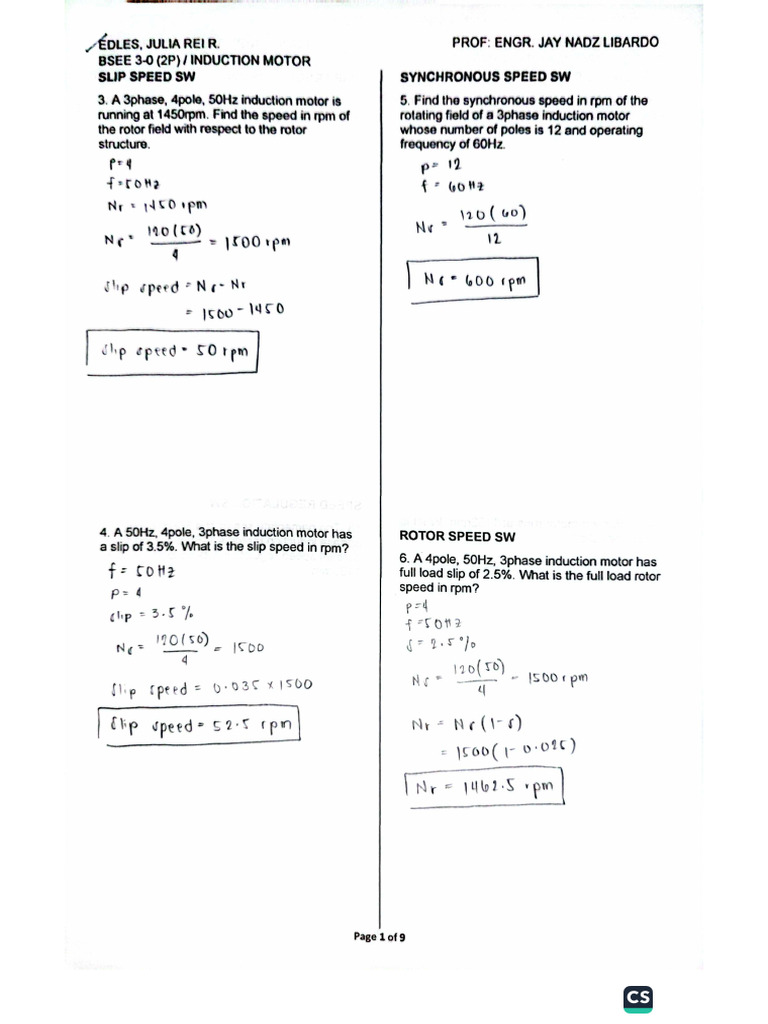 EDLES, JULIA REI R.
BSEE 3-0 (2P) / INDUCTION MOTOR
SLIP SPEED SW
3. A 3phase, 4pole, 50Hz induction motor is
running at 1450rpm. Find the speed in rpm of
the rotor field with respect to the rotor
structure.
P=4
f=50Hz
Nr = 1450 rpm
Ns = 120(50)/4 = 1500 rpm
slip speed = Ns - Nr
= 1500 - 1450
slip speed = 50 rpm
4. A 50Hz, 4pole, 3phase induction motor has
a slip of 3.5%. What is the slip speed in rpm?
f = 50Hz
P = 4
slip = 3.5 %
Ns = 120(50)/4 = 1500
slip speed = 0.035 x 1500
slip speed = 52.5 rpm
PROF: ENGR. JAY NADZ LIBARDO
SYNCHRONOUS SPEED SW
5. Find the synchronous speed in rpm of the
rotating field of a 3phase induction motor
whose number of poles is 12 and operating
frequency of 60Hz.
P = 12
f = 60Hz
Ns = 120(60)/12
Ns = 600 rpm
ROTOR SPEED SW
6. A 4pole, 50Hz, 3phase induction motor has
full load slip of 2.5%. What is the full load rotor
speed in rpm?
P=4
f=50Hz
s = 2.5%
Ns = 120(50)/4 = 1500 rpm
Nr = Ns(1-s)
= 1500(1-0.025)
Nr = 1462.5 rpm
Page 1 of 9
CS